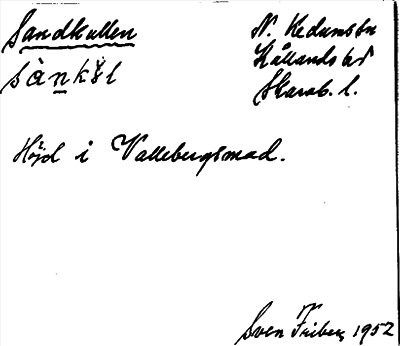 Sandkullen
N. Kedumssn
sànkɤ̀l
Kållands hd
Skarab. l.
Höjd i Vallebergsmad.
Sven Friberg 1952